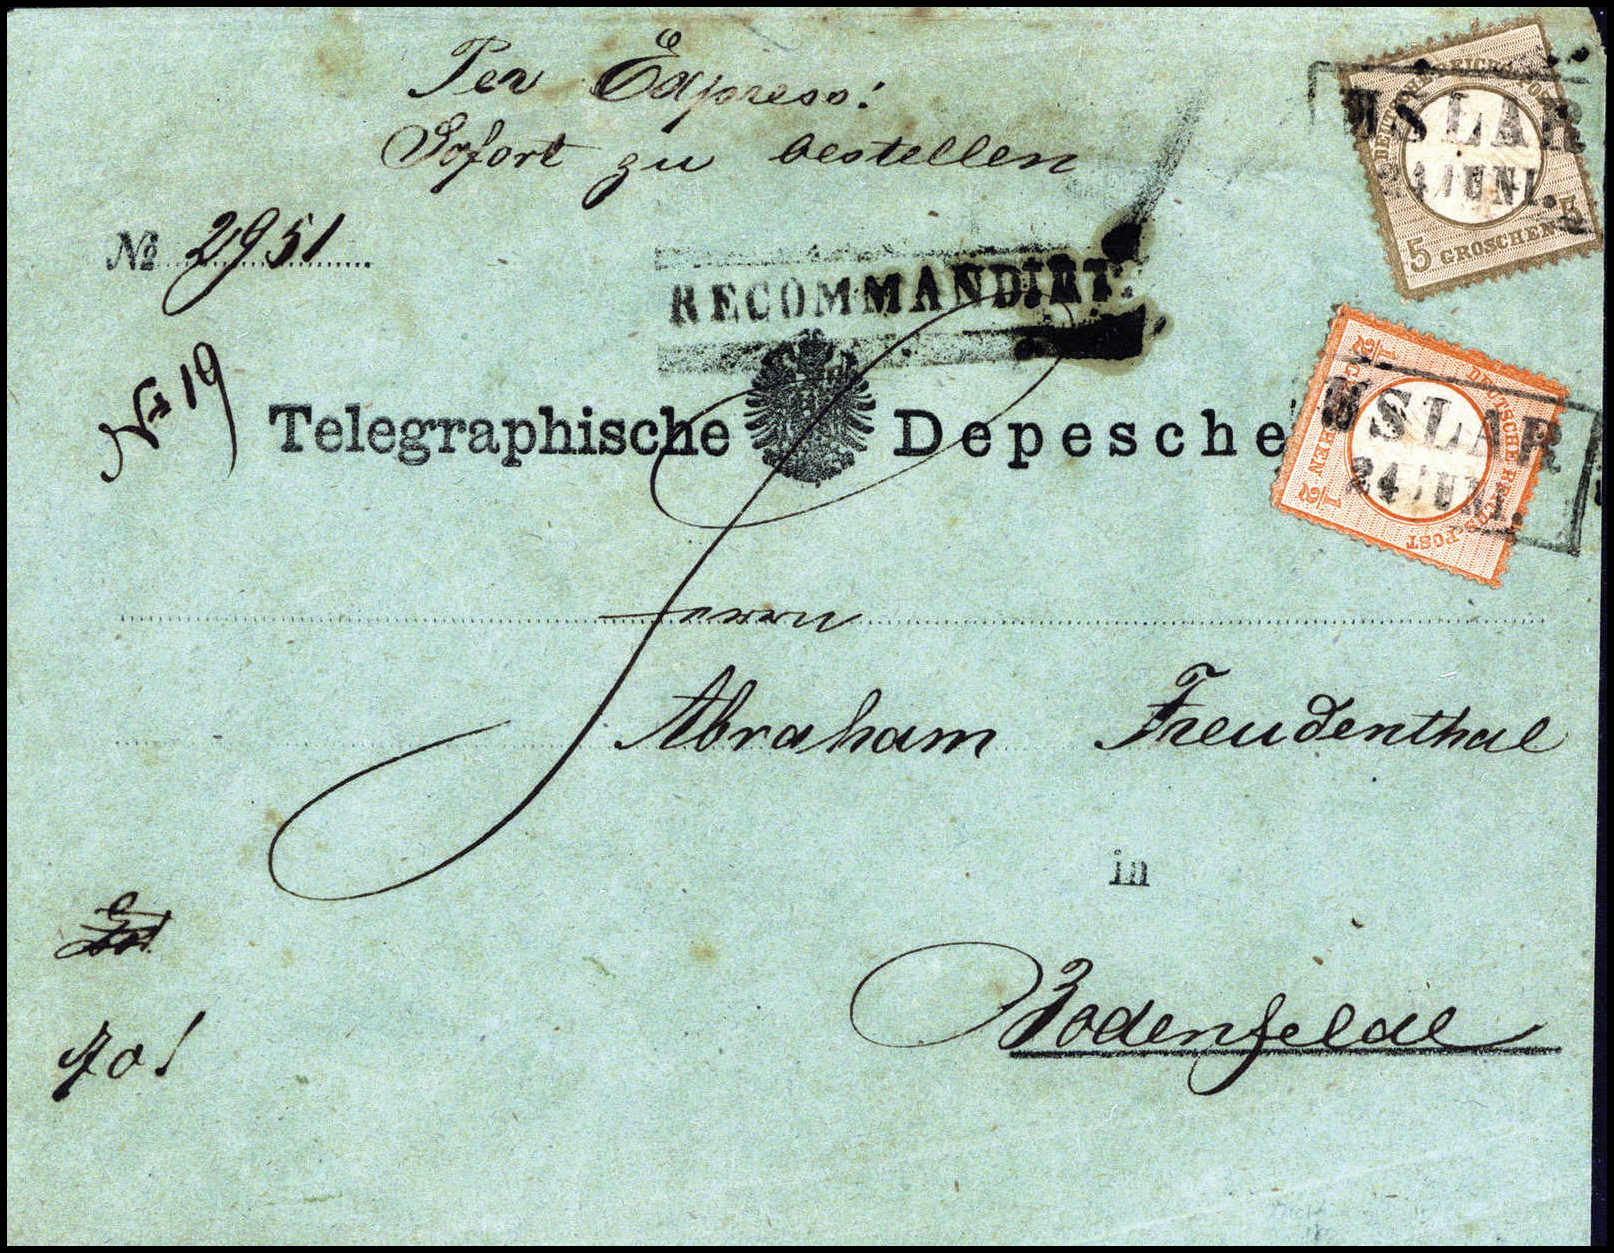 Per Express:
Sofort zu bestellen
№ 2951
RECOMMANDIRT.
No 19
Telegraphische Depesche
DEUTSCHE REICHS-POST
5 GROSCHEN 5
USLAR
24 JUNI.
DEUTSCHE REICHS-POST
1/2 GROSCHEN 1/2
USLAR
24 JUNI.
Herrn
Abraham Freudenthal
in
Bodenfelde